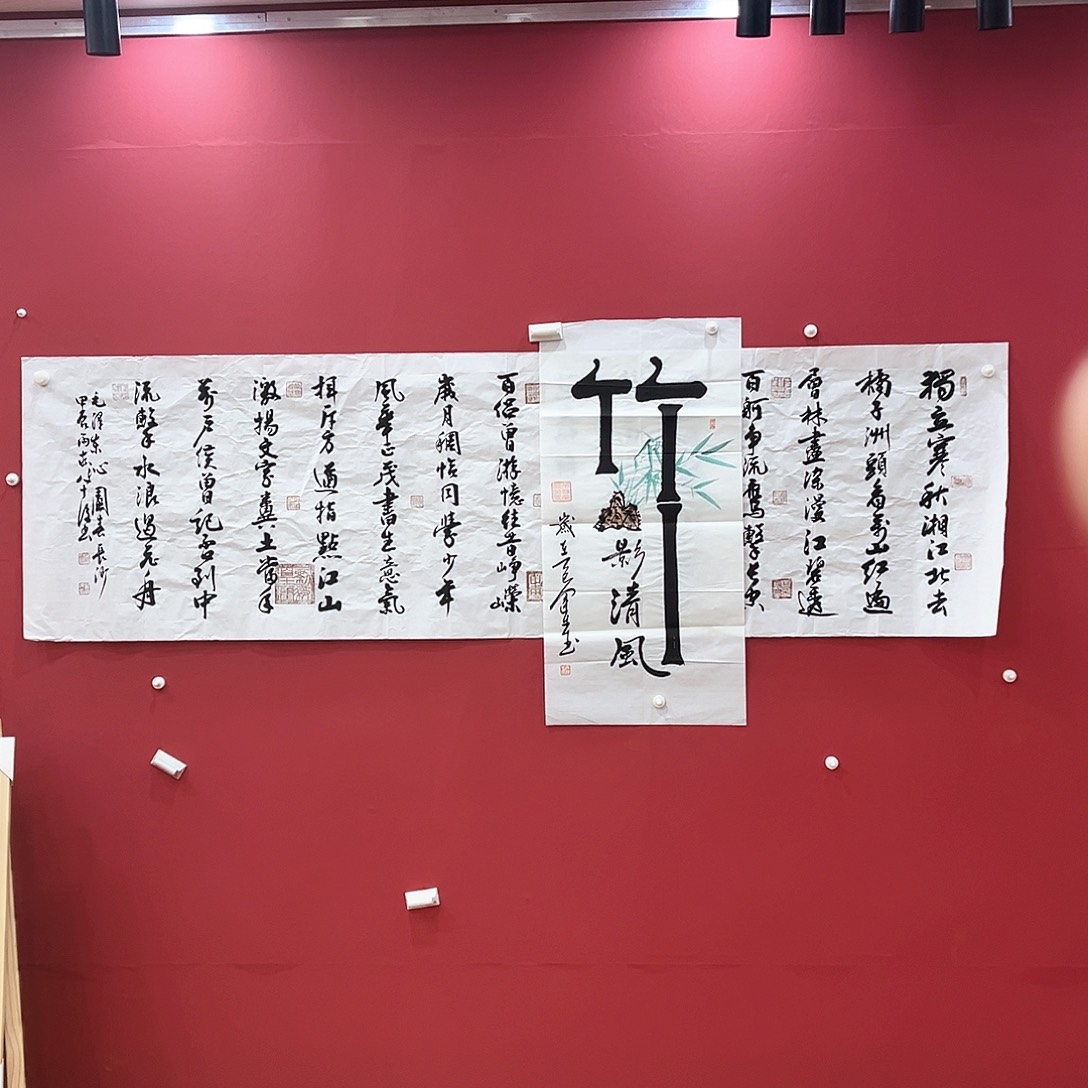 獨立寒秋湘江北去
橘子洲頭看萬山红遍
層林盡染漫江碧透
百舸争流鹰擊長空
竹
影清風
歲在乙巳
百侣曾游憶往昔峥嶸
歲月稠恰同學少年
風華正茂書生意氣
揮斥方遒指點江山
激揚文字糞土當年
萬户侯曾記否到中
流擊水浪遏飞舟
毛澤東沁園春長沙
甲辰